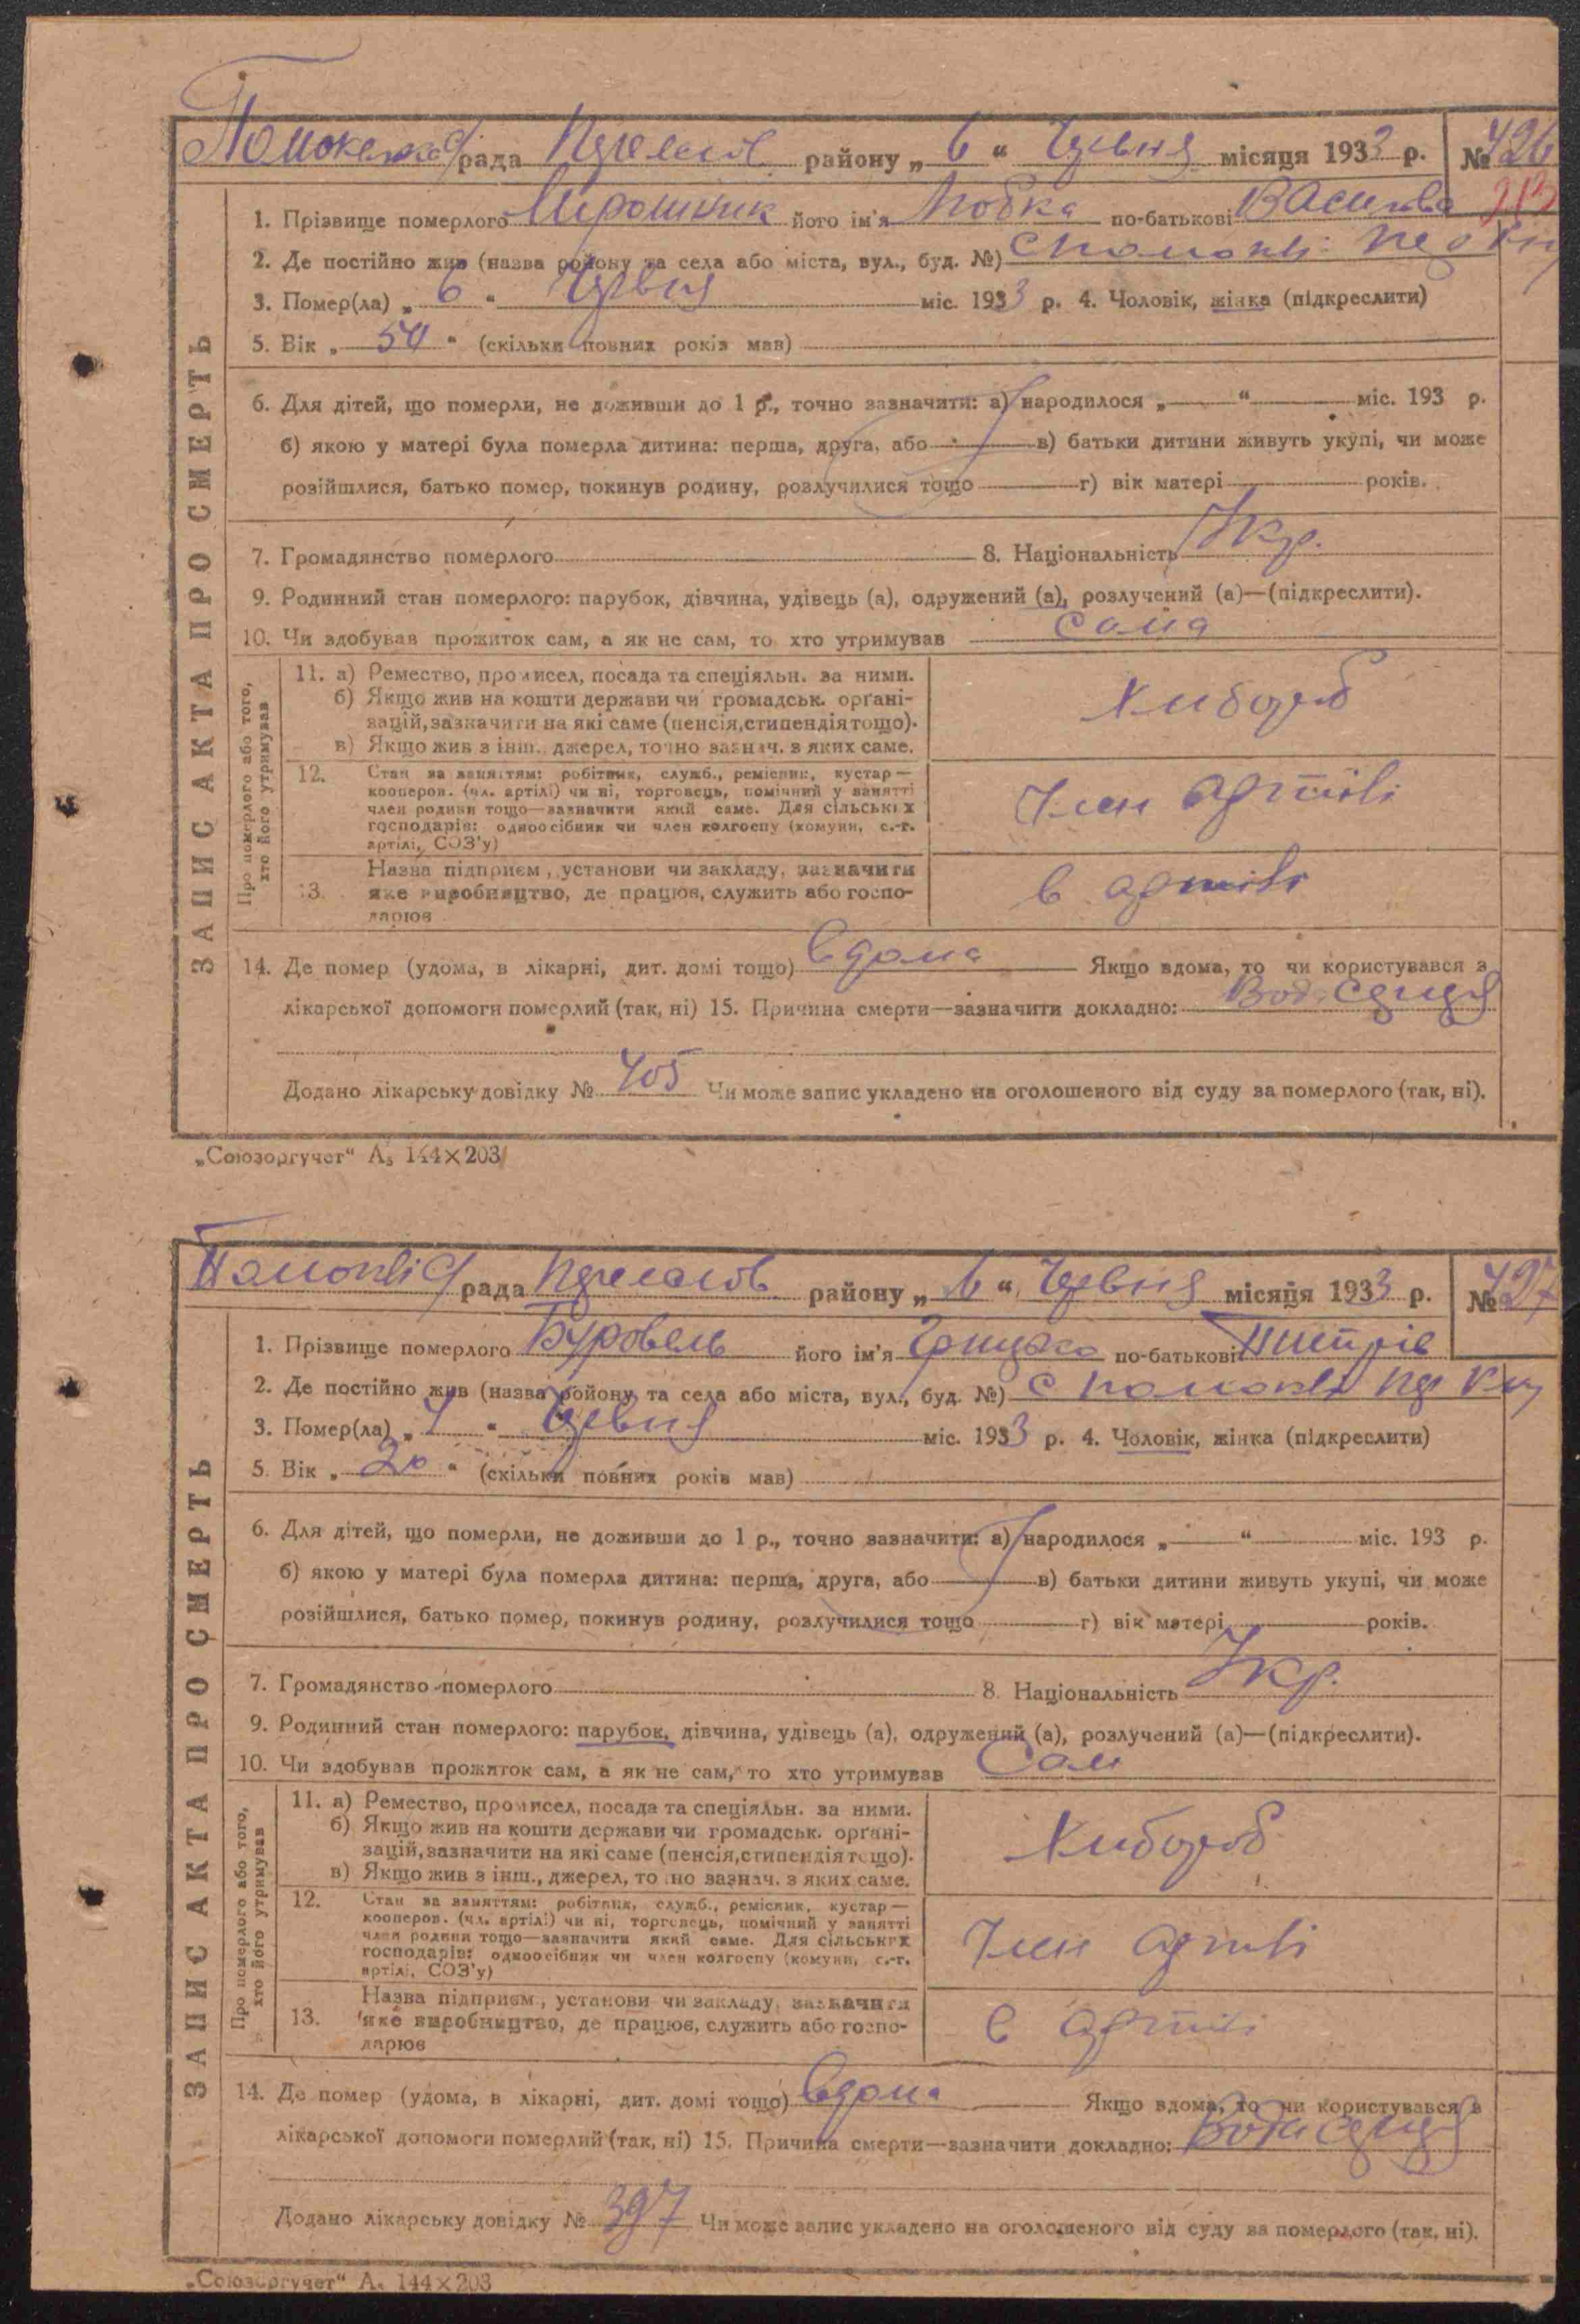 рада району „ 6 “ Червня місяця 1933 р. № 426
1. Прізвище померлого Мирошник його ім'я по-батькові Василівна 213
2. Де постійно жив (назва району та села або міста, вул., буд. №)
3. Помер(ла) „ 6 “ Червня міс. 1933 р. 4. Чоловік, жінка (підкреслити)
5. Вік „ 54 “ (скільки повних років мав)
6. Для дітей, що померли, не доживши до 1 р., точно зазначити: а) народилося „ “ міс. 193 р.
б) якою у матері була померла дитина: перша, друга, або в) батьки дитини живуть укупі, чи може
розійшлися, батько помер, покинув родину, розлучилися тощо г) вік матері років.
7. Громадянство померлого 8. Національність Укр.
9. Родинний стан померлого: парубок, дівчина, удівець (а), одружений (а), розлучений (а)—(підкреслити).
10. Чи здобував прожиток сам, а як не сам, то хто утримував сама
ЗАПИС АКТА ПРО СМЕРТЬ
Про померлого або того, хто його утримував
11. а) Ремество, промисел, посада та спеціяльн. за ними.
б) Якщо жив на кошти держави чи громадськ. орґані-
зацій, зазначити на які саме (пенсія, стипендія тощо).
в) Якщо жив з інш., джерел, точно зазнач. з яких саме.
Хлібороб
12. Стан за заняттям: робітник, служб., ремісник, кустар—
кооперов. (чл. артілі) чи ні, торговець, помічний у занятті
член родини тощо—зазначити який саме. Для сільських
господарів: одноосібник чи член колгоспу (комуни, с.-г.
артілі, СОЗ'у)
Член артілі
13. Назва підприєм., установи чи закладу, зазначити
яке виробництво, де працює, служить або госпо-
дарює
в артілі
14. Де помер (удома, в лікарні, дит. домі тощо) вдома Якщо вдома, то чи користувався з
лікарської допомоги померлий (так, ні) 15. Причина смерти—зазначити докладно:
Додано лікарську довідку № 405 Чи може запис укладено на оголошеного від суду за померлого (так, ні).
„Союзоргучет“ А₅ 144×203
рада району „ 6 “ Червня місяця 1933 р. № 427
1. Прізвище померлого його ім'я Грицько по-батькові
2. Де постійно жив (назва району та села або міста, вул., буд. №)
3. Помер(ла) „ “ Червня міс. 1933 р. 4. Чоловік, жінка (підкреслити)
5. Вік „ 20 “ (скільки повних років мав)
6. Для дітей, що померли, не доживши до 1 р., точно зазначити: а) народилося „ “ міс. 193 р.
б) якою у матері була померла дитина: перша, друга, або в) батьки дитини живуть укупі, чи може
розійшлися, батько помер, покинув родину, розлучилися тощо г) вік матері років.
7. Громадянство померлого 8. Національність Укр.
9. Родинний стан померлого: парубок, дівчина, удівець (а), одружений (а), розлучений (а)—(підкреслити).
10. Чи здобував прожиток сам, а як не сам, то хто утримував Сам
ЗАПИС АКТА ПРО СМЕРТЬ
Про померлого або того, хто його утримував
11. а) Ремество, промисел, посада та спеціяльн. за ними.
б) Якщо жив на кошти держави чи громадськ. орґані-
зацій, зазначити на які саме (пенсія, стипендія тощо).
в) Якщо жив з інш., джерел, точно зазнач. з яких саме.
Хлібороб
12. Стан за заняттям: робітник, служб., ремісник, кустар—
кооперов. (чл. артілі) чи ні, торговець, помічний у занятті
член родини тощо—зазначити який саме. Для сільських
господарів: одноосібник чи член колгоспу (комуни, с.-г.
артілі, СОЗ'у)
Член артілі
13. Назва підприєм., установи чи закладу, зазначити
яке виробництво, де працює, служить або госпо-
дарює
в артілі
14. Де помер (удома, в лікарні, дит. домі тощо) вдома Якщо вдома, то чи користувався з
лікарської допомоги померлий (так, ні) 15. Причина смерти—зазначити докладно:
Додано лікарську довідку № 397 Чи може запис укладено на оголошеного від суду за померлого (так, ні).
„Союзоргучет“ А₅ 144×203